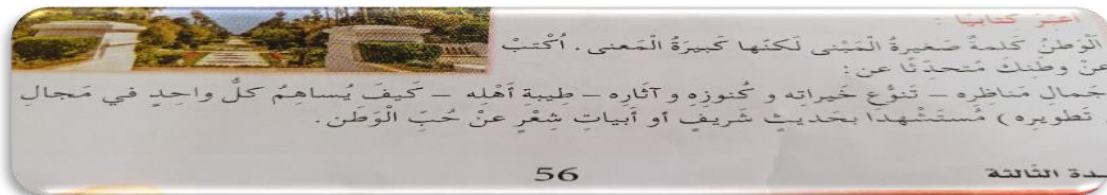 أعبّر كتابيا :
الْوَطَنُ كَلمةٌ صَغيرةُ الْمَبْنى لَكنّها كَبيرَةُ الْمَعنى . اُكْتبْ
عنْ وطَنِكَ مُتحدّثًا عن :
جَمالِ مَناظِره – تَنوُّعِ خَيراتِه و كُنوزِه و آثارِه – طِيبةِ أَهْلِه – كَيفَ يُساهِمُ كلُّ واحِدٍ في مَجالِ
تَطويرِه ) مُستَشْهِدا بحَديثٍ شَريفٍ أو أَبياتِ شِعْرٍ عنْ حُبّ الْوَطَن .
56
الثالثة